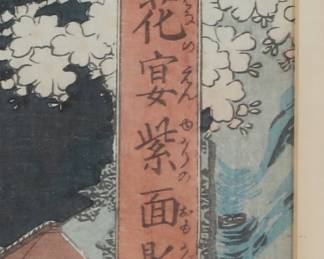 花宴紫面影
なのえんゆかりのおもか